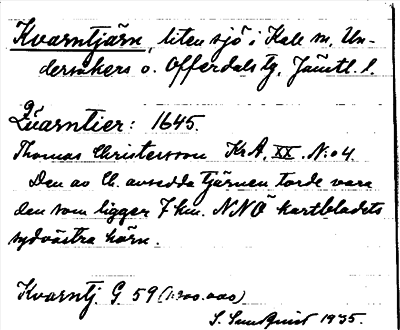 Kvarntjärn, liten sjö i Kalls sn, Un-
dersåkers o. Offerdals tg, Jämtl. l.
Quarntier: 1645.
Thomas Christersson KrA, XX. N:o 4.
Den av Ch. avsedda tjärnen torde vara
den som ligger 7 km. NNÖ kartbladets
sydvästra hörn.
Kvarntj. G 59 (1:200.000)
S. Sundquist 1935.